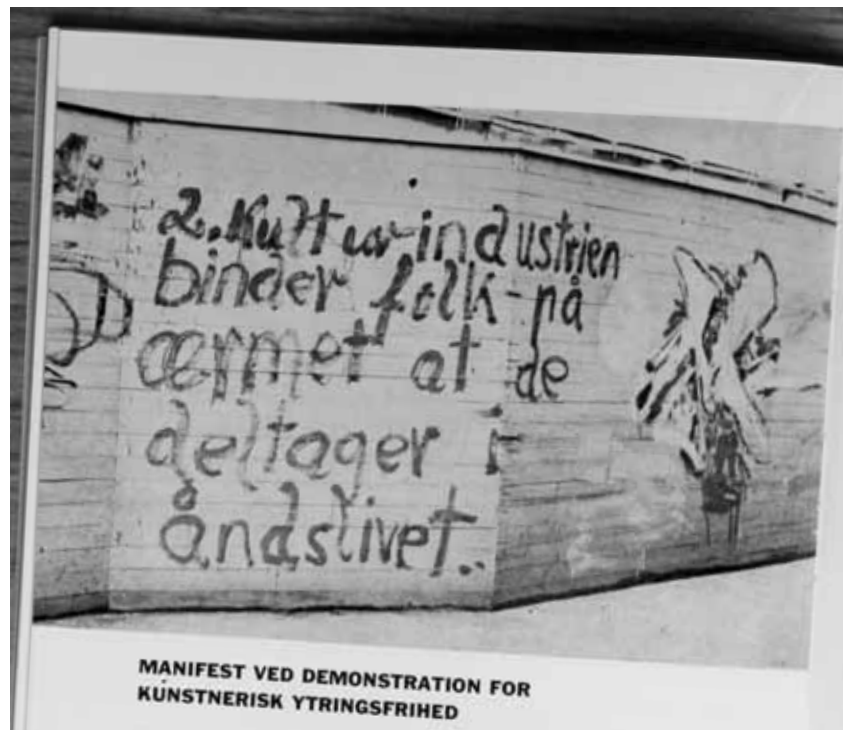 2. Kultur-industrien
binder folk på
ærmet at de
deltager i
åndslivet..
MANIFEST VED DEMONSTRATION FOR
KUNSTNERISK YTRINGSFRIHED